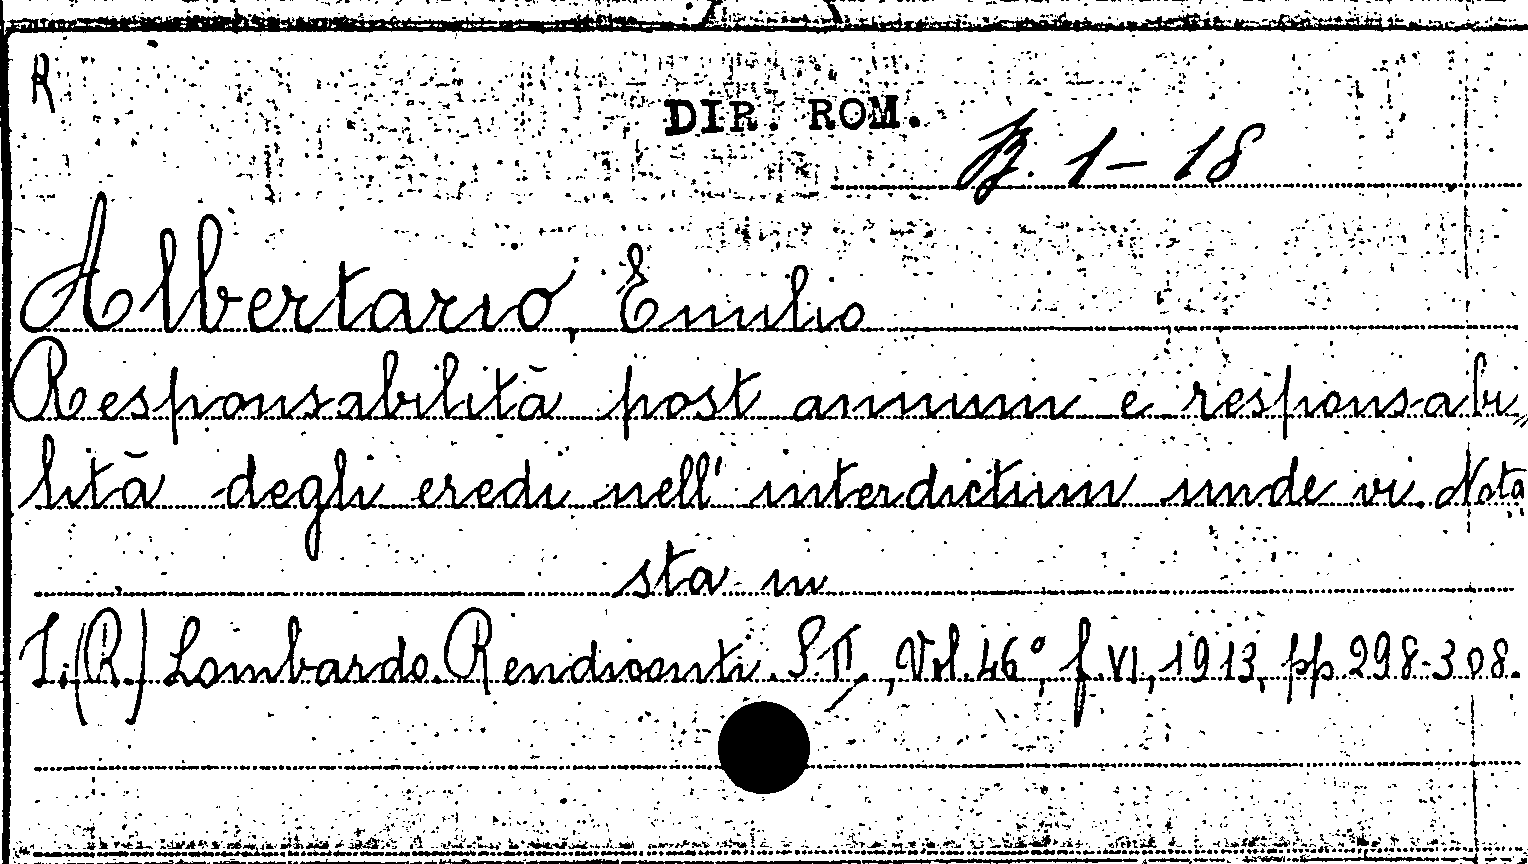 R
DIR. ROM.
B. 1-18
Albertario, Emilio
Responsabilità post annum e responsabi„
lità degli eredi nell' interdictum unde vi. Nota
sta in
I.(R.) Lombardo. Rendiconti. S. II, Vol. 46°, f. VI, 1913, pp. 298-308.